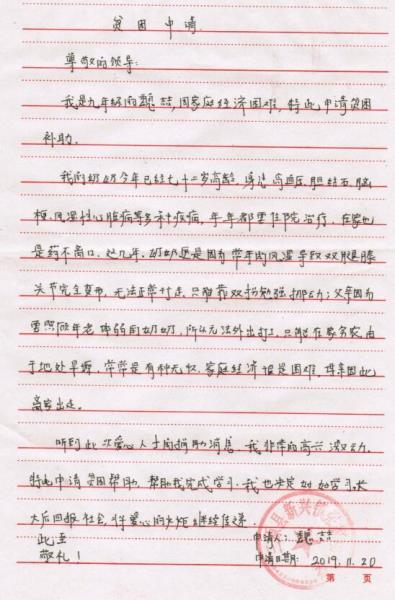 贫困申请
尊敬的领导:
我是九年级的 喆,因家庭经济困难,特此申请贫困
补助。
我的奶奶今年已经七十二岁高龄,身患高血压、胆结石、脑
梗、风湿性心脏病等多种疾病,年年都要住院治疗,在家也
是药不离口。这几年,奶奶更是因为常年的风湿导致双腿膝
关节完全变形,无法正常行走,只能靠双拐勉强挪动;父亲因为
要照顾年老体弱的奶奶,所以无法外出打工,只能在家务农,由
于地处旱塬,常常是有种无收,家庭经济很是困难,母亲因此
离家出走。
听到此次爱心人士的捐助消息,我非常的高兴激动,
特此申请贫困帮助,帮助我完成学习,我也决定好好学习,长
大后回报社会,将爱心的火炬继续传递。
此至
敬礼!
申请人: 喆
申请日期: 2019.11.20
县新兴
第 页